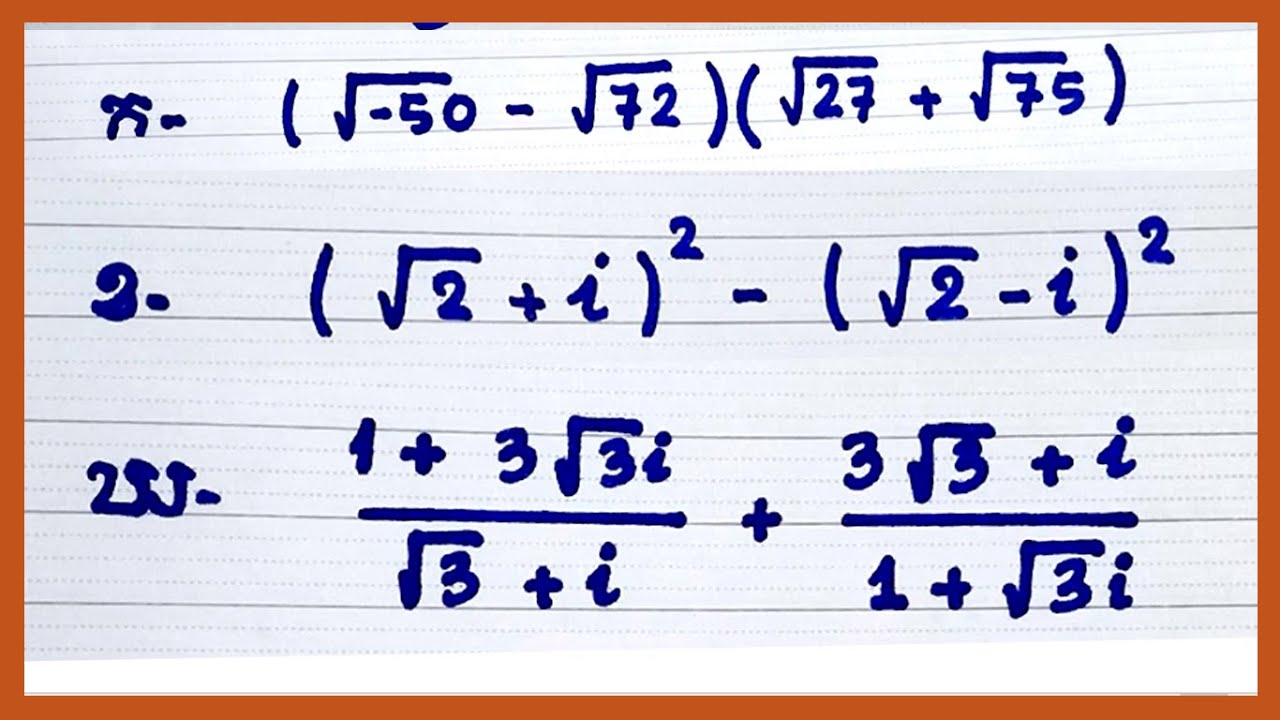 ក- (√-50 - √72)(√27 + √75)
ខ- (√2 + i)² - (√2 - i)²
ឃ- (1 + 3√3i)/(√3 + i) + (3√3 + i)/(1 + √3i)